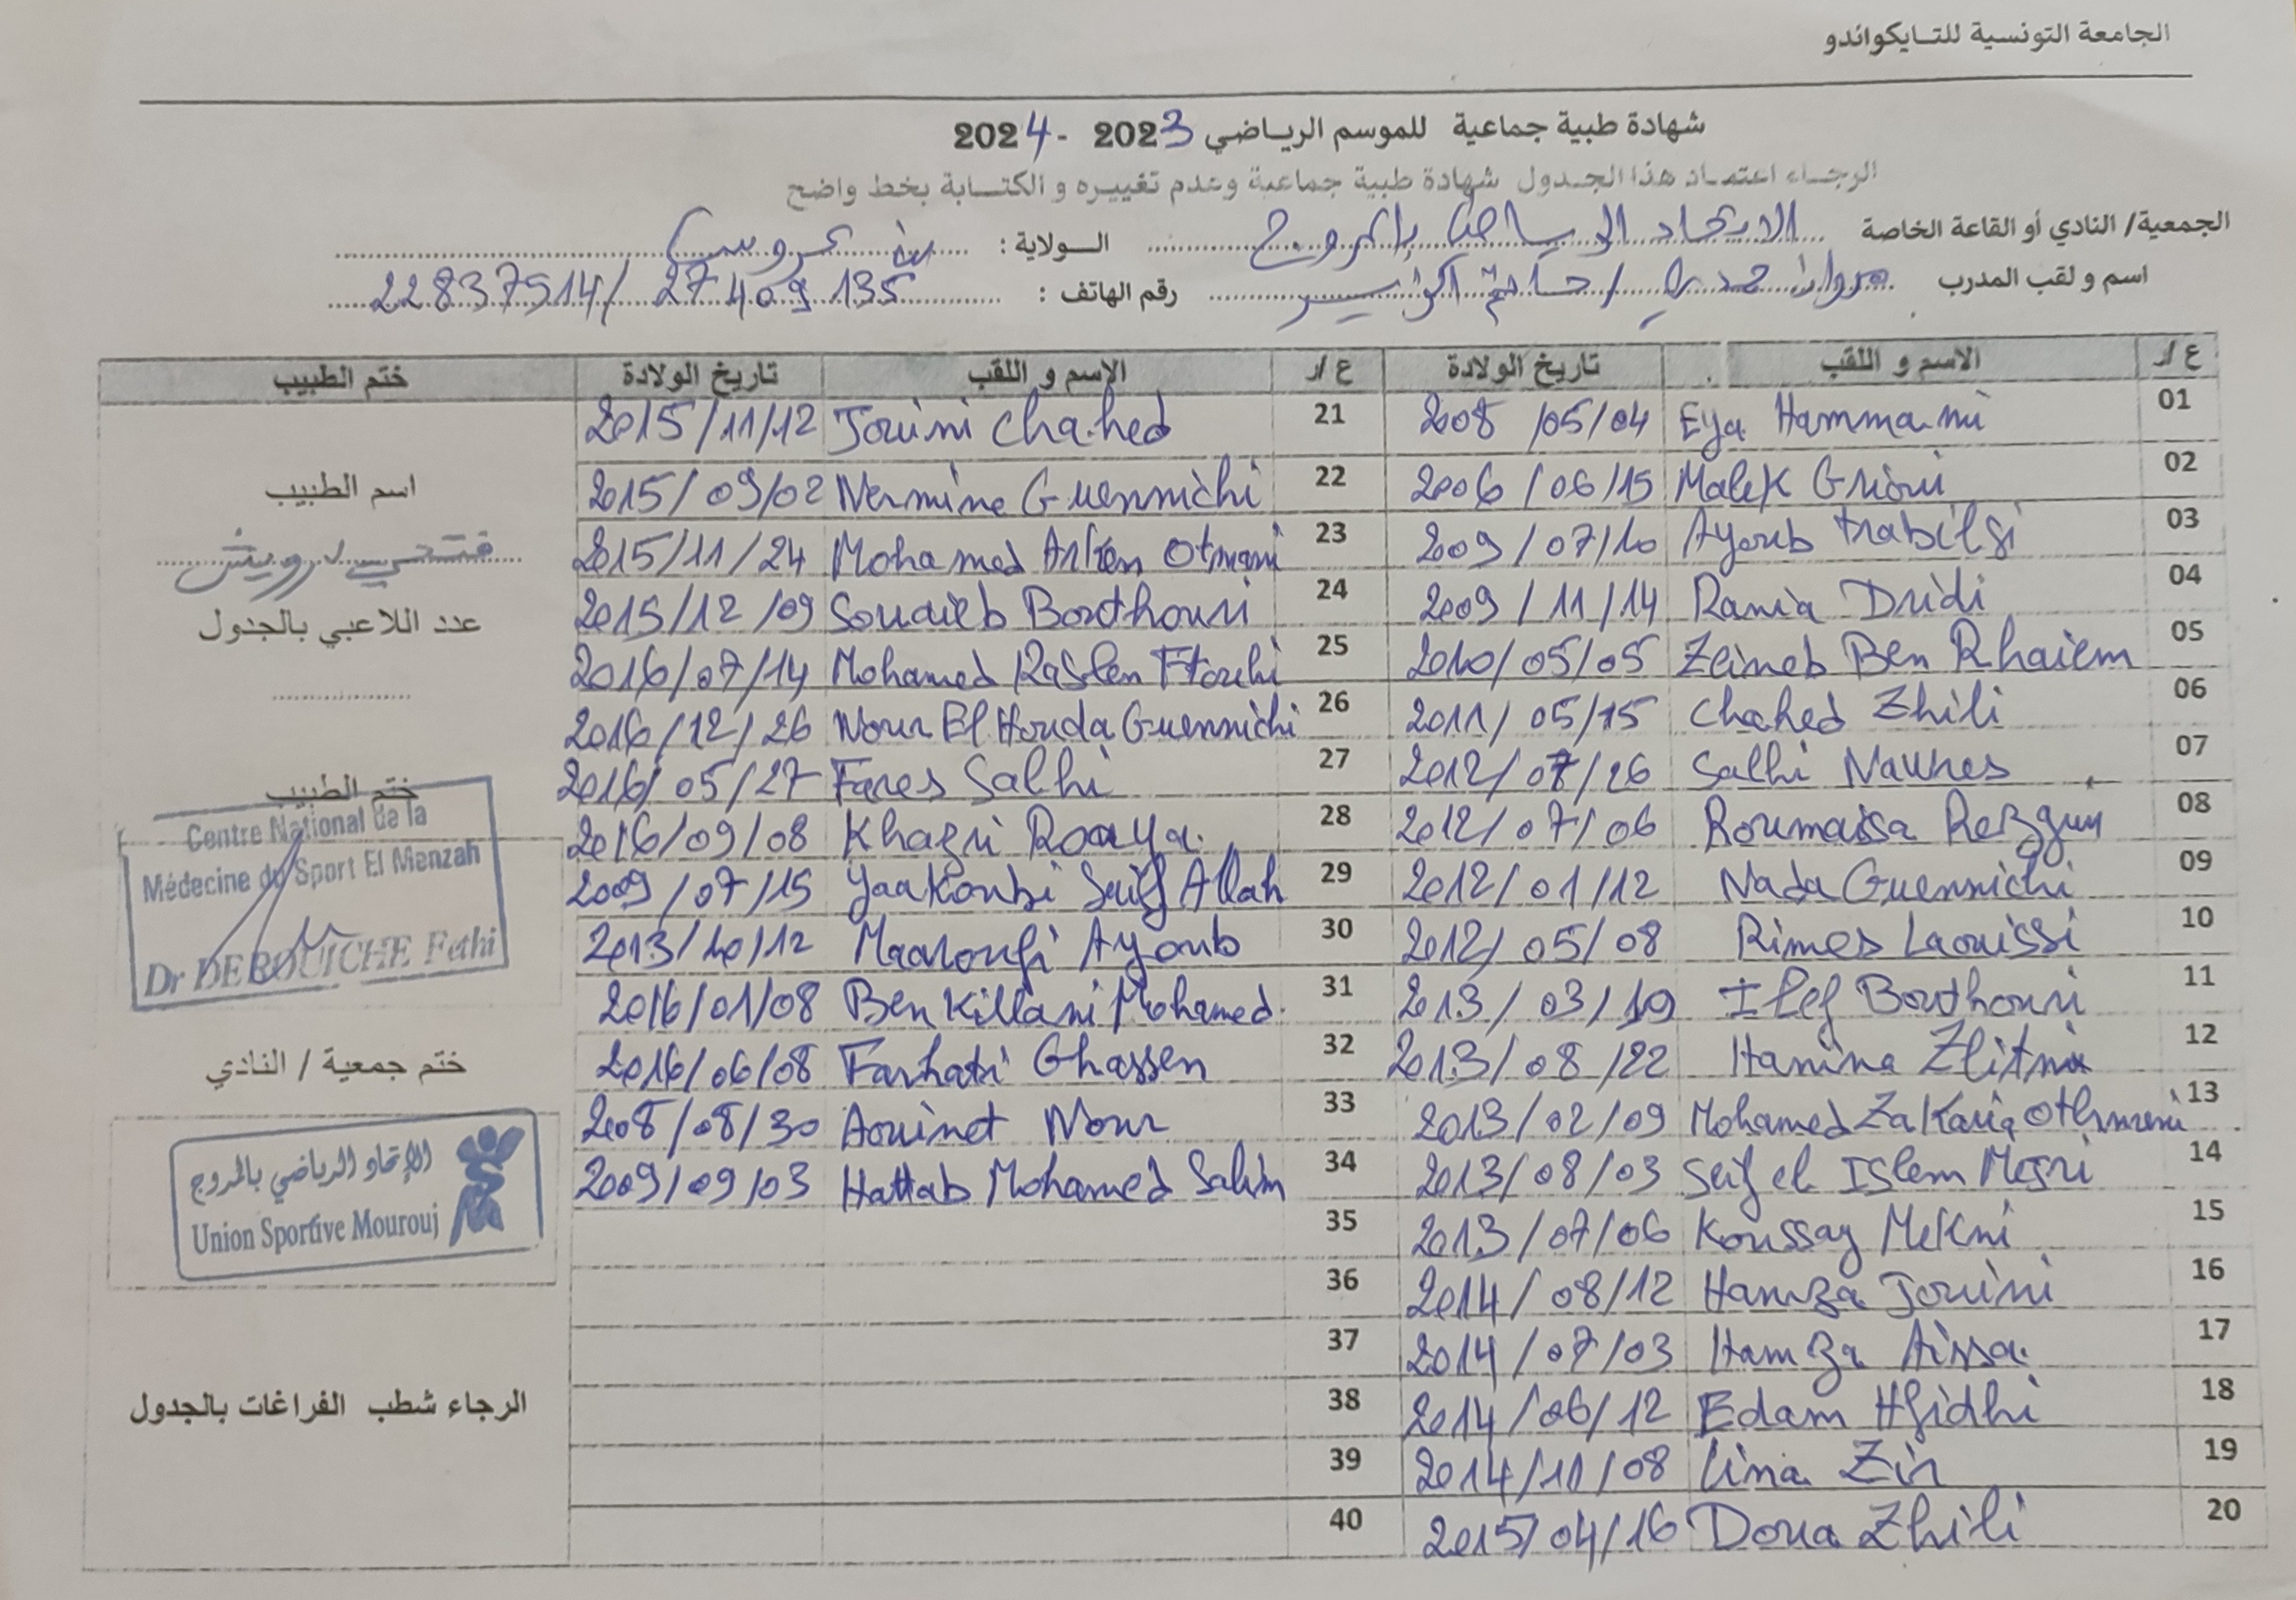 الجامعة التونسية للتايكواندو
شهادة طبية جماعية للموسم الرياضي 2023 - 2024
الرجاء اعتماد هذا الجدول شهادة طبية جماعية وعدم تغييره و الكتابة بخط واضح
الجمعية/ النادي أو القاعة الخاصة الاتحاد الرياضي بالمروج الولاية : بن عروس
اسم و لقب المدرب مروان حمدي / حاتم رقم الهاتف : 22837514/ 27 409 135
ع/ر الاسم و اللقب تاريخ الولادة ع/ر الاسم و اللقب تاريخ الولادة ختم الطبيب
01 Eya Hammami 2008/05/04
02 Malek 2006/06/15
03 Ayoub trabilsi 2009/07/10
04 Rania Dridi 2009/11/14
05 Zeineb Ben Rhaiem 2010/05/05
06 Chahed Zhili 2011/05/15
07 Salhi 2012/07/26
08 Roumaissa Rezgui 2012/07/06
09 Nada Guennichi 2012/01/12
10 Rimes Laouissi 2012/05/08
11 Ilef Bouthouri 2013/03/19
12 Hanina Zlitni 2013/08/22
13 Mohamed Zakaria Othmeni 2013/02/09
14 Seif el Islem Mejri 2013/08/03
15 Koussay Mekni 2013/07/06
16 Hamza Jouini 2014/08/12
17 Hamza Aissa 2014/07/03
18 Edam Hfidhi 2014/06/12
19 Lina Zir 2014/11/08
20 Doua Zhili 2015/04/16
21 Jouini Chahed 2015/11/12
22 Nermine Guennichi 2015/09/02
23 Mohamed Otmani 2015/11/24
24 Souaieb Bouthouri 2015/12/09
25 Mohamed Raslen Ftouhi 2016/07/14
26 Nour El Houda Guennichi 2016/12/26
27 Fares Salhi 2016/05/27
28 Khazri Roaya 2016/09/08
29 Yaakoubi Seif Allah 2009/07/15
30 Maaroufi Ayoub 2013/10/12
31 Ben Killani Mohamed 2016/01/08
32 Farhati Ghassen 2016/06/08
33 Aouinet Nour 2008/08/30
34 Hattab Mohamed Salim 2009/09/03
35
36
37
38
39
40
اسم الطبيب
فتحي درويش
عدد اللاعبي بالجدول
ختم الطبيب
Centre National de la
Médecine du Sport El Menzah
Dr DEROUICHE Fethi
ختم جمعية / النادي
الإتحاد الرياضي بالمروج
Union Sportive Mourouj
الرجاء شطب الفراغات بالجدول